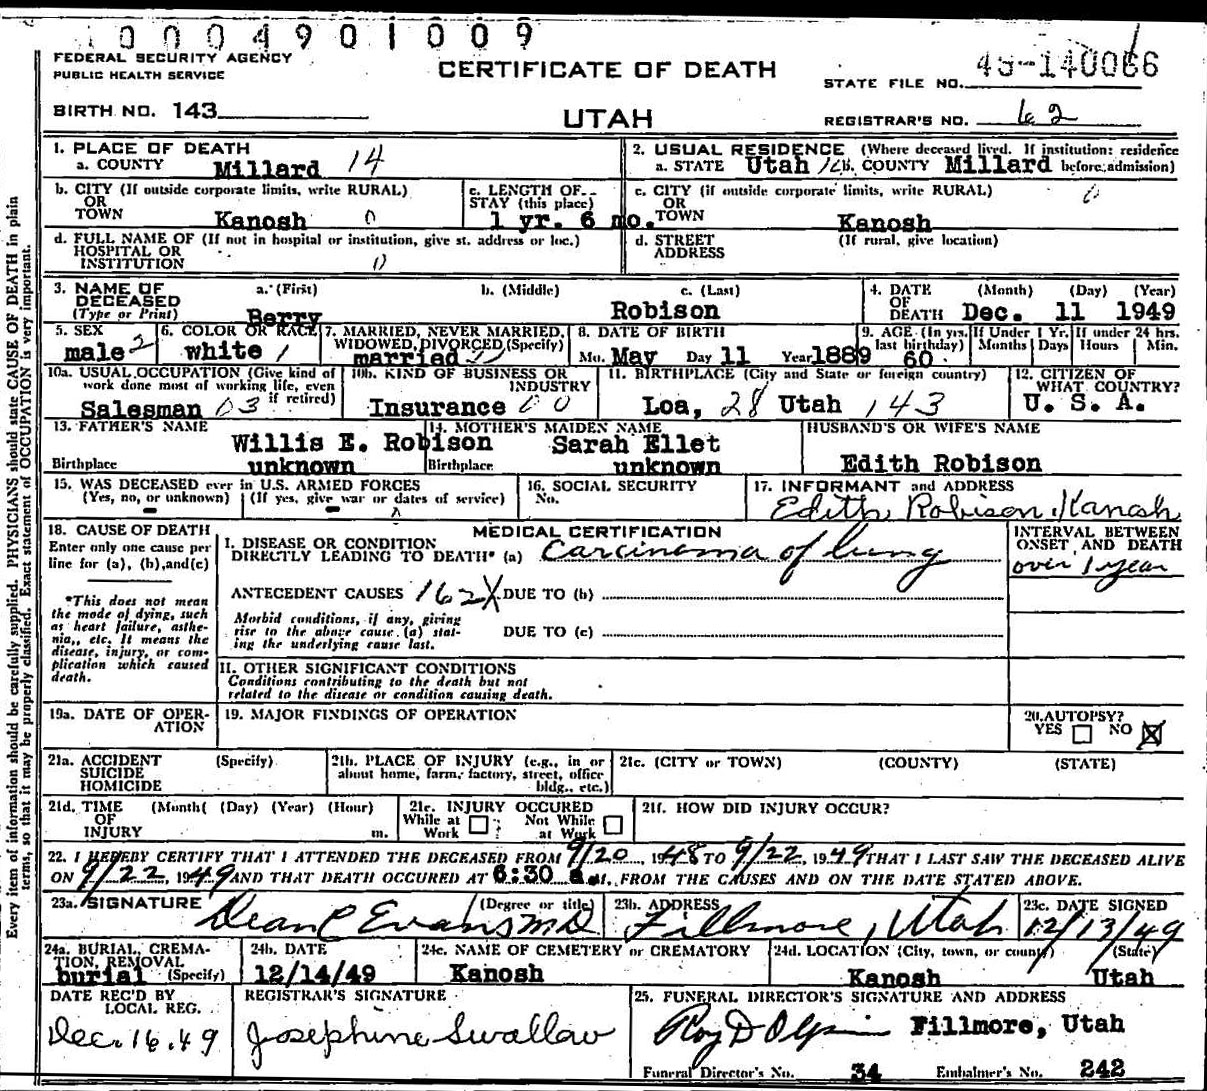 0004901009
FEDERAL SECURITY AGENCY
PUBLIC HEALTH SERVICE
CERTIFICATE OF DEATH
STATE FILE NO. 49-140066
BIRTH NO. 143
UTAH
REGISTRAR'S NO. 62
1. PLACE OF DEATH
a. COUNTY Millard 14
2. USUAL RESIDENCE (Where deceased lived. If institution: residence before admission)
a. STATE Utah b. COUNTY Millard
b. CITY (If outside corporate limits, write RURAL) OR TOWN Kanosh 0
c. LENGTH OF STAY (this place) 1 yr. 6 mo.
c. CITY (if outside corporate limits, write RURAL) OR TOWN Kanosh 0
d. FULL NAME OF (If not in hospital or institution, give st. address or loc.) HOSPITAL OR INSTITUTION 0
d. STREET ADDRESS (If rural, give location)
3. NAME OF DECEASED (Type or Print) a. (First) Berry b. (Middle) c. (Last) Robison
4. DATE OF DEATH (Month) (Day) (Year) Dec. 11 1949
5. SEX male 2
6. COLOR OR RACE white 1
7. MARRIED, NEVER MARRIED, WIDOWED, DIVORCED (Specify) married
8. DATE OF BIRTH Mo. May Day 11 Year 1889
9. AGE (In yrs. last birthday) 60 If Under 1 Yr. Months Days If under 24 hrs. Hours Min.
10a. USUAL OCCUPATION (Give kind of work done most of working life, even if retired) Salesman 03
10b. KIND OF BUSINESS OR INDUSTRY Insurance 00
11. BIRTHPLACE (City and State or foreign country) Loa, 28 Utah 143
12. CITIZEN OF WHAT COUNTRY? U. S. A.
13. FATHER'S NAME Willis E. Robison
Birthplace unknown
14. MOTHER'S MAIDEN NAME Sarah Ellet
Birthplace unknown
HUSBAND'S OR WIFE'S NAME
Edith Robison
15. WAS DECEASED ever in U.S. ARMED FORCES
(Yes, no, or unknown) - (If yes, give war or dates of service) -
16. SOCIAL SECURITY No.
17. INFORMANT and ADDRESS
Edith Robison, Kanosh
18. CAUSE OF DEATH
Enter only one cause per line for (a), (b), and (c)
MEDICAL CERTIFICATION
INTERVAL BETWEEN ONSET AND DEATH
I. DISEASE OR CONDITION DIRECTLY LEADING TO DEATH* (a) Carcinoma of lung
over 1 year
*This does not mean the mode of dying, such as heart failure, asthenia,, etc. It means the disease, injury, or complication which caused death.
ANTECEDENT CAUSES 162X DUE TO (b)
Morbid conditions, if any, giving rise to the above cause (a) stating the underlying cause last. DUE TO (c)
II. OTHER SIGNIFICANT CONDITIONS
Conditions contributing to the death but not related to the disease or condition causing death.
19a. DATE OF OPERATION
19. MAJOR FINDINGS OF OPERATION
20. AUTOPSY?
YES NO X
21a. ACCIDENT SUICIDE HOMICIDE (Specify)
21b. PLACE OF INJURY (e.g., in or about home, farm, factory, street, office bldg., etc.)
21c. (CITY or TOWN) (COUNTY) (STATE)
21d. TIME OF INJURY (Month( (Day) (Year) (Hour) m.
21e. INJURY OCCURED While at Work Not While at Work
21f. HOW DID INJURY OCCUR?
22. I HEREBY CERTIFY THAT I ATTENDED THE DECEASED FROM 9/20, 1948 TO 9/22, 1949 THAT I LAST SAW THE DECEASED ALIVE
ON 9/22, 1949 AND THAT DEATH OCCURED AT 6:30 a.M. FROM THE CAUSES AND ON THE DATE STATED ABOVE.
23a. SIGNATURE (Degree or title) Dean C Evans MD
23b. ADDRESS Fillmore, Utah
23c. DATE SIGNED 12/13/49
24a. BURIAL, CREMATION, REMOVAL (Specify) burial
24b. DATE 12/14/49
24c. NAME OF CEMETERY or CREMATORY Kanosh
24d. LOCATION (City, town, or county) (State) Kanosh Utah
DATE REC'D BY LOCAL REG. Dec. 16. 49
REGISTRAR'S SIGNATURE Josephine Swallow
25. FUNERAL DIRECTOR'S SIGNATURE AND ADDRESS
Roy D Fillmore, Utah
Funeral Director's No. 34 Embalmer's No. 242
Every item of information should be carefully supplied. PHYSICIANS should state CAUSE OF DEATH in plain
terms, so that it may be properly classified. Exact statement of OCCUPATION is very important.